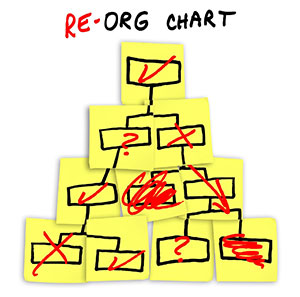 RE-ORG CHART
?
?